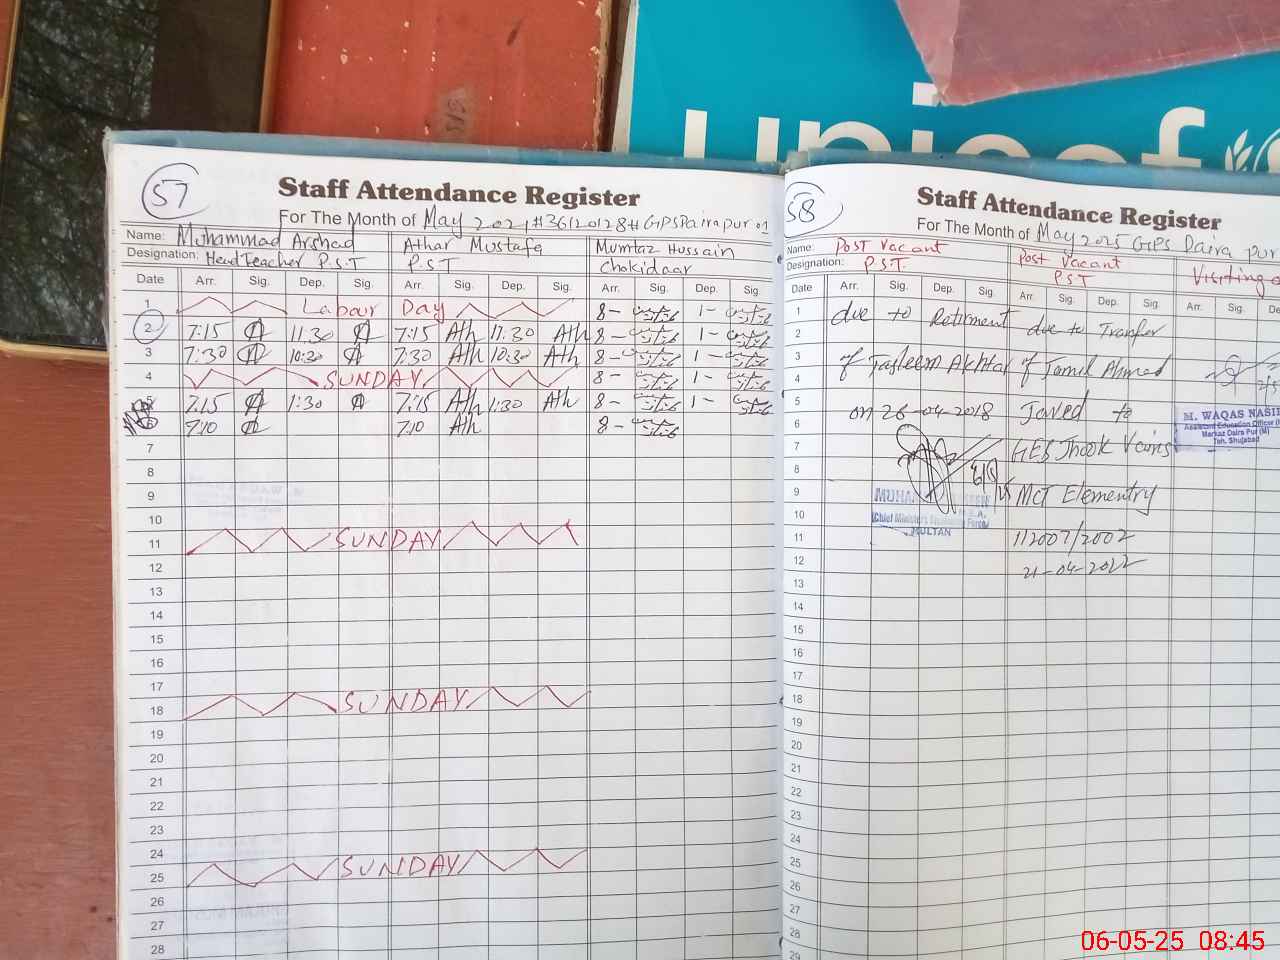 unicef
57
Staff Attendance Register
For The Month of May 202 #36120128# GPS Daira pur 01
Name: Muhammad Arshad Athar Mustafa Mumtaz Hussain
Designation: Head Teacher P.S.T P.S.T Chokidaar
Date Arr. Sig. Dep. Sig. Arr. Sig. Dep. Sig. Arr. Sig. Dep. Sig.
1 Labour Day 8- 1-
2 7:15 11:30 7:15 Ath 11:30 Ath 8- 1-
3 7:30 10:30 7:30 Ath 10:30 Ath 8- 1-
4 SUNDAY 8- 1-
5 7:15 1:30 7:15 Ath 1:30 Ath 8- 1-
6 7:10 7:10 Ath 8-
7
8
9
10
11 SUNDAY
12
13
14
15
16
17
18 SUNDAY
19
20
21
22
23
24
25 SUNDAY
26
27
28
58
Staff Attendance Register
For The Month of May 2025 GPS Daira pur
Name: Post Vacant Post Vacant Visiting
Designation: P.S.T. PST
Date Arr. Sig. Dep. Sig. Arr. Sig. Dep. Sig. Arr. Sig. De
1 due to Retirment due to Tranfer
2
3 of Tasleem Akhtar of Jamil Ahmed
4
5 on 26-04-2018 Javed to
6
7 GES Jhook Vains
8
9 MCT Elementry
10
11 112007/2002
12 21-04-2022
13
14
15
16
17
18
19
20
21
22
23
24
25
26
27
28
29
M. WAQAS NASI
Assistant Education Officer
Markaz Daira Pur (M)
Teh. Shujabad
MULTAN
06-05-25 08:45